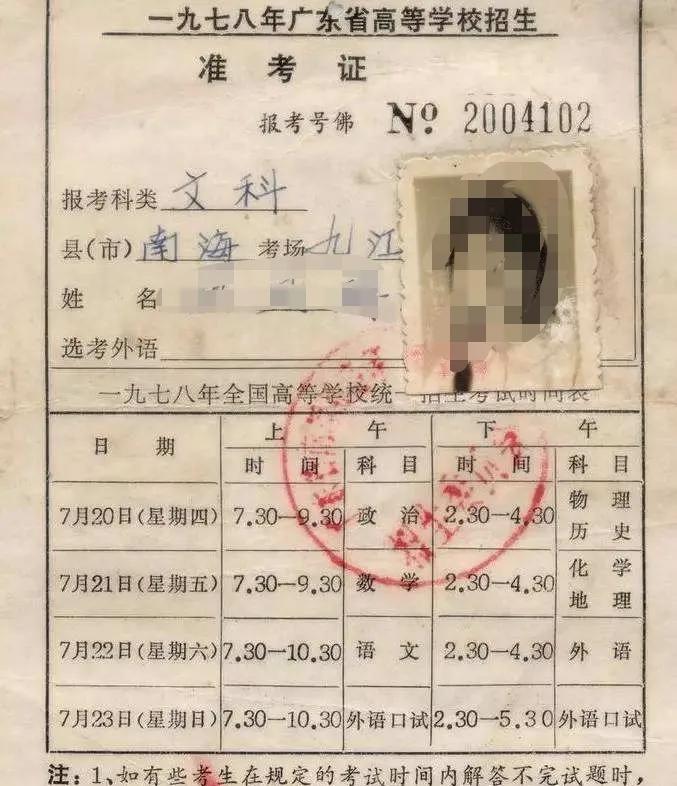 一九七八年广东省高等学校招生
准考证
报考号佛 No 2004102
报考科类 文科
县(市) 南海 考场 九江
姓 名
选考外语
一九七八年全国高等学校统一招生考试时间表
日 期 上 午 下 午
时 间 科 目 时 间 科 目
7月20日(星期四) 7.30—9.30 政 治 2.30—4.30 物 理 历 史
7月21日(星期五) 7.30—9.30 数 学 2.30—4.30 化 学 地 理
7月22日(星期六) 7.30—10.30 语 文 2.30—4.30 外 语
7月23日(星期日) 7.30—10.30 外语口试 2.30—5.30 外语口试
注：1、如有些考生在规定的考试时间内解答不完试题时，